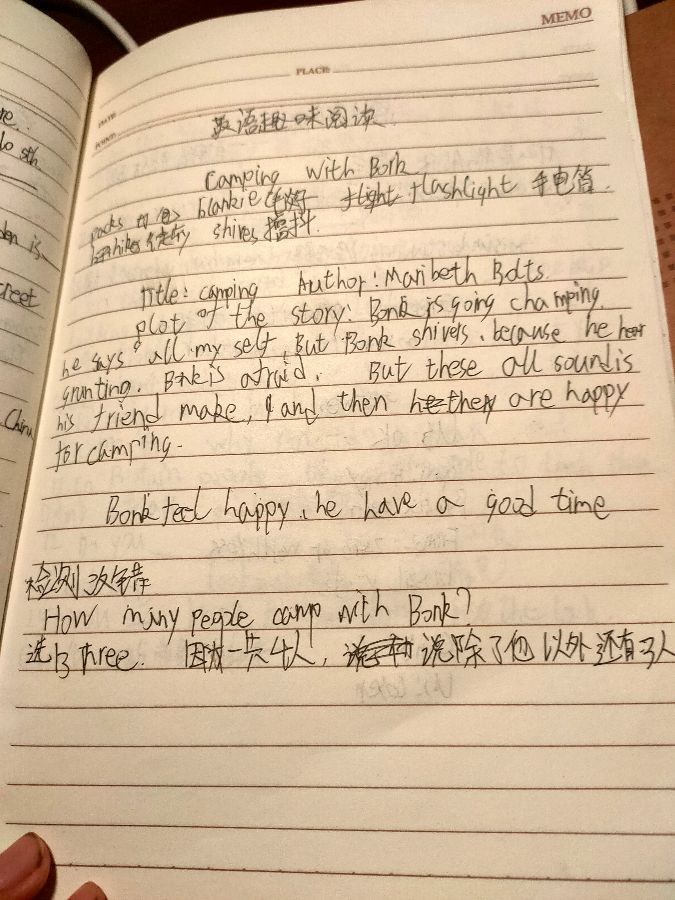 MEMO
PLACE:
DATE:
POINT:
英语趣味阅读
Camping With Bonk
packs 打包 blankie flashlight 手电筒
hikes 徒步 shives 擅抖
Title: camping Author: Maribeth Bolts.
plot of the story: Bonk is going champing.
he says all my self, But Bonk shivers. because he hear
grunting. Bonk is afraid. But these all sound is
his friend make, and then they are happy
for camping.
Bonk feel happy, he have a good time
检测改错
How miny people camp with Bonk?
选B three. 因为一共4人, 说除了他以外还有3人
re.
do sth
den is
reet
China